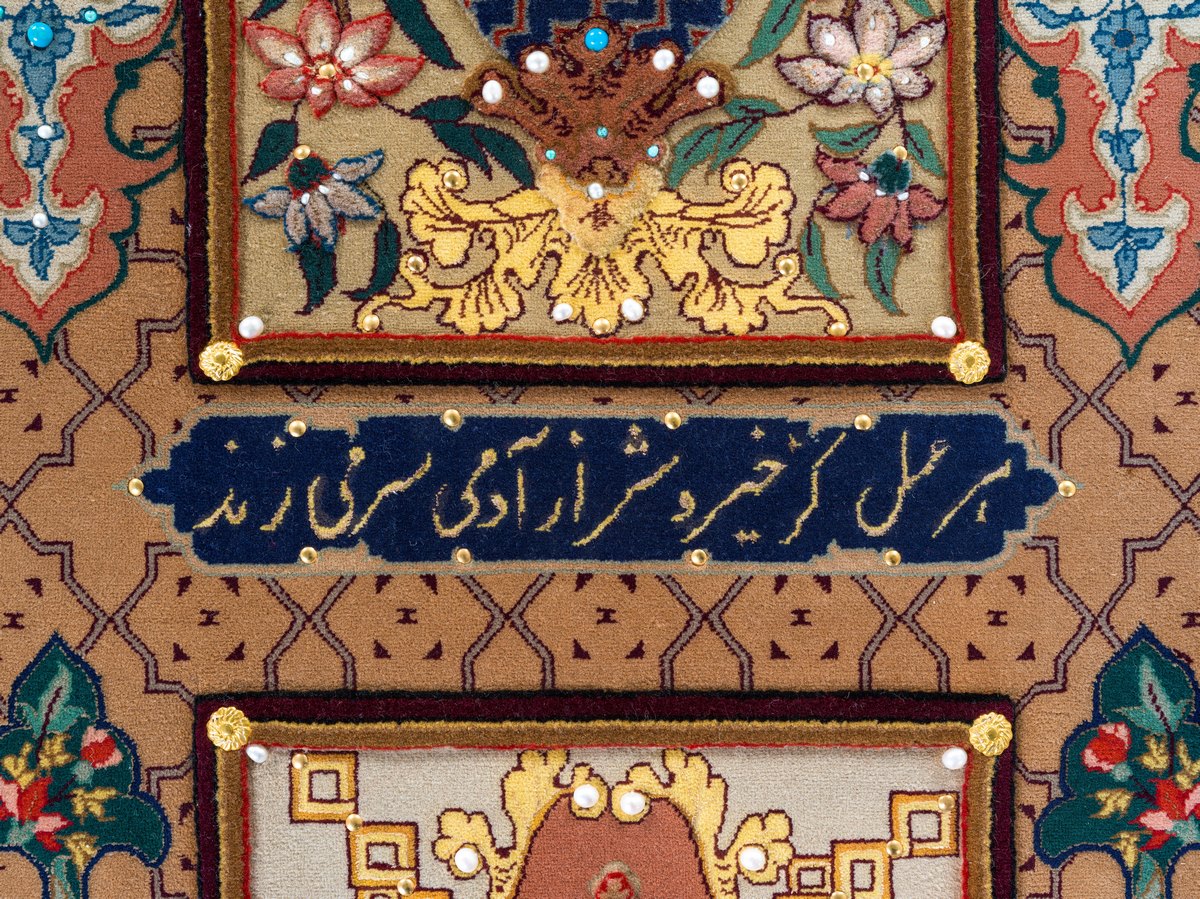 هر عمل کز خیر و شر از آدمی سر می زند